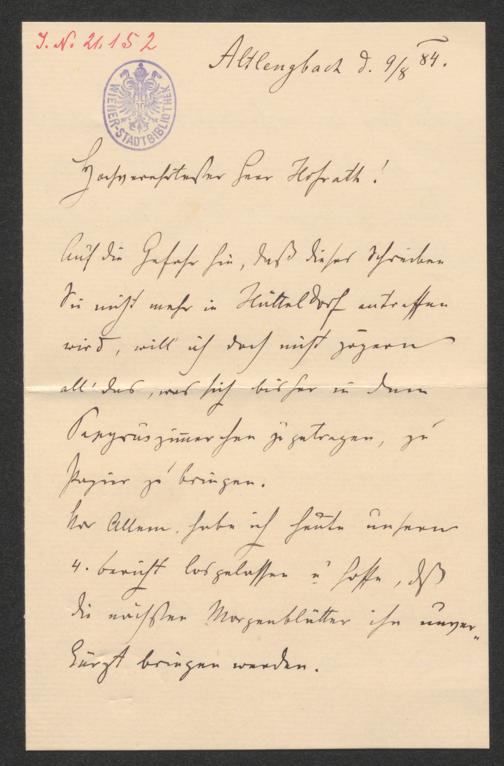 J. N. 21.152
Altlengbach d. 9/8 84.
WIENER-STADTBIBLIOTHEK
Hochverehrtester Herr Hofrath!
Auf die Gefahr hin, daß dieses Schreiben
Sie nicht mehr in Hütteldorf antreffen
wird, will ich doch nicht zögern
all' das, was sich bisher in dem
zugetragen, zu
Papier zu bringen.
Vor Allem habe ich heute unsern
4. Bericht losgelassen u hoffe, daß
die nächsten Morgenblätter ihn unver-
kürzt bringen werden.